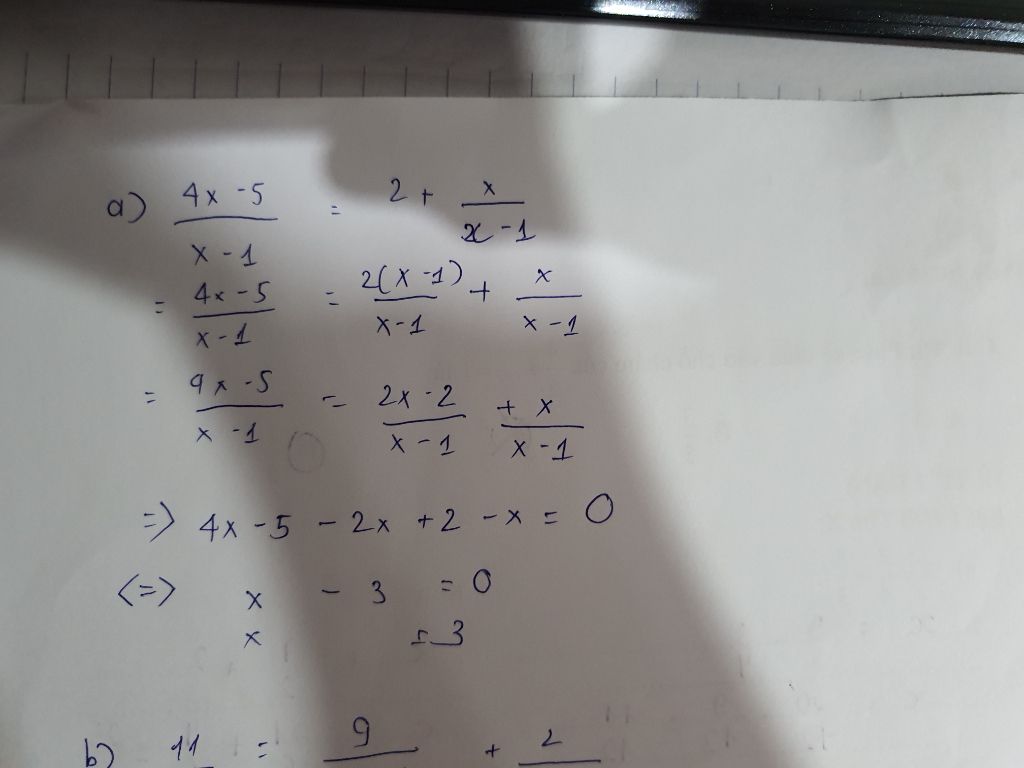 a) (4x - 5)/(x - 1) = 2 + x/(x - 1)
= (4x - 5)/(x - 1) = 2(x - 1)/(x - 1) + x/(x - 1)
= (9x - 5)/(x - 1) = (2x - 2)/(x - 1) + x/(x - 1)
=> 4x - 5 - 2x + 2 - x = 0
<=> x - 3 = 0
x = 3
b) 11 = 9 + 2